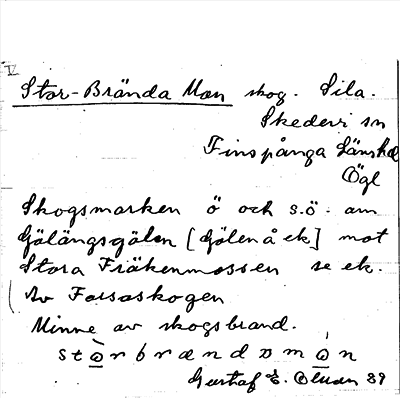 V
Stor-Brända Mon skog. Sila.
Skedevi sn
Finspånga Länshd
Ögl
Skogsmarken ö och s.ö. om
Gölängsgölen [Gölen å ek] mot
Stora Fräkenmossen se ek.
Av Forsaskogen
Minne av skogsbrand.
stọ̀rbrændɒmọ́n
Gustaf E. Olsson 39